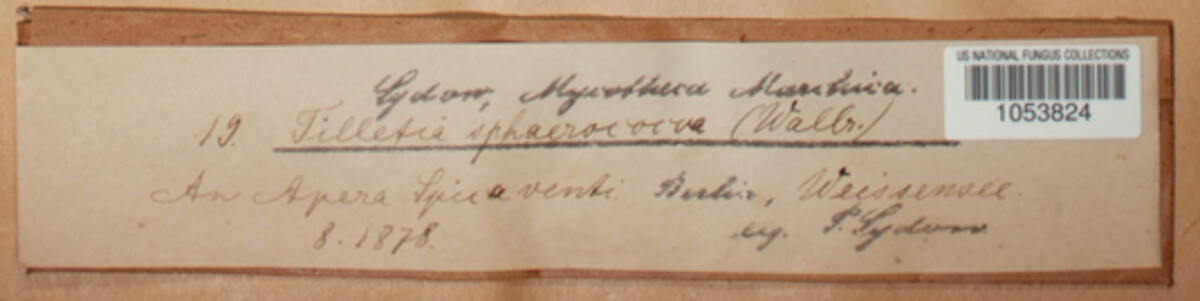 Sydow, Mycotheca Marchica.
US NATIONAL FUNGUS COLLECTIONS
1053824
19. Tilletia sphaerococca (Wallr.)
An Apera Spica venti. Berlin, Weissensee.
8. 1878. leg. P. Sydow